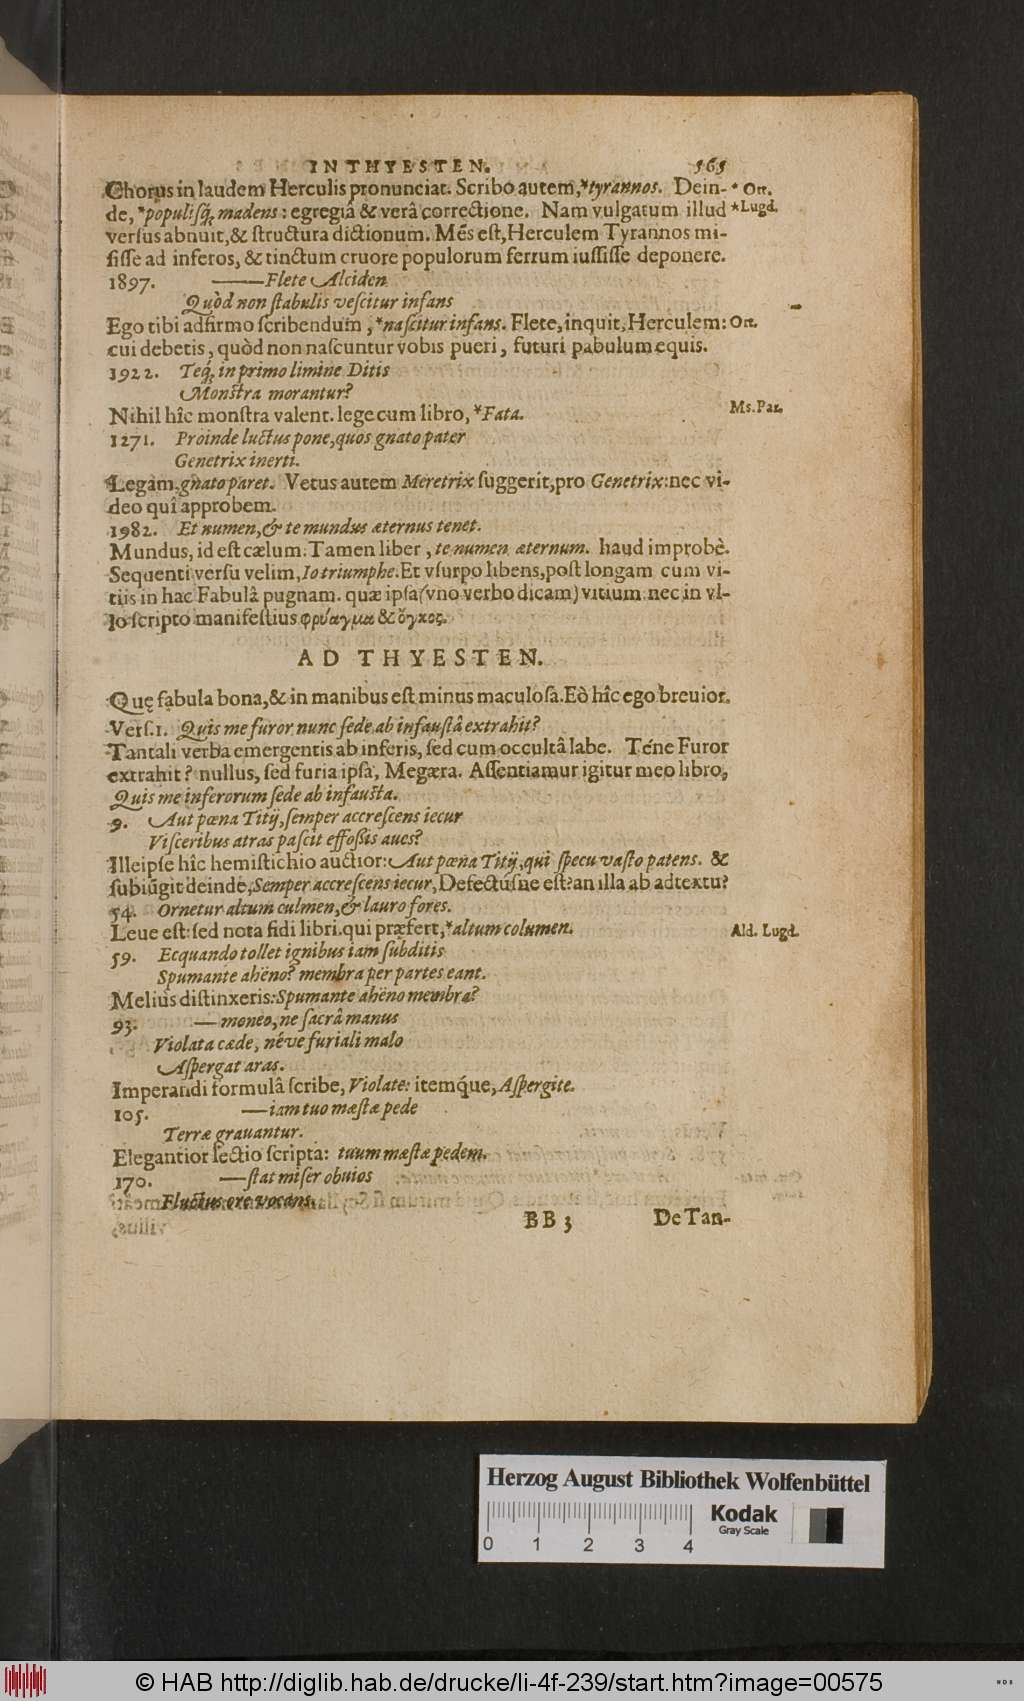 IN THYESTEN. 565
Chorus in laudem Herculis pronunciat. Scribo autem, *tyrannos. Dein- * Ort.
de, *populisq́; madens: egregiâ & verâ correctione. Nam vulgatum illud *Lugd.
versus abnuit, & structura dictionum. Més est, Herculem Tyrannos mi-
sisse ad inferos, & tinctum cruore populorum ferrum iussisse deponere.
1897. —— Flete Alciden
Quòd non stabulis vescitur infans
Ego tibi adfirmo scribendum, *nascitur infans. Flete, inquit, Herculem: Ort.
cui debetis, quòd non nascuntur vobis pueri, futuri pabulum equis.
1922. Teq́; in primo limine Ditis
Monstra morantur?
Nihil hîc monstra valent. lege cum libro, *Fata. Ms. Par.
1271. Proinde luctus pone, quos gnato pater
Genetrix inerti.
Legam. gnato paret. Vetus autem Meretrix suggerit, pro Genetrix: nec vi-
deo quî approbem.
1982. Et numen, & te mundus æternus tenet.
Mundus, id est cælum. Tamen liber, te numen æternum. haud improbè.
Sequenti versu velim, Io triumphe. Et vsurpo libens, post longam cum vi-
tiis in hac Fabulâ pugnam. quæ ipsa (vno verbo dicam) vitium: nec in vl-
lo scripto manifestius φρύαγμα & ὄγκος.
AD THYESTEN.
Quę fabula bona, & in manibus est minus maculosa. Eò hîc ego breuior.
Vers. 1. Quis me furor nunc sede ab infaustâ extrahit?
Tantali verba emergentis ab inferis, sed cum occultâ labe. Téne Furor
extrahit? nullus, sed furia ipsa, Megæra. Assentiamur igitur meo libro,
Quis me inferorum sede ab infausta.
9. Aut pœna Titij, semper accrescens iecur
Visceribus atras pascit effossis aues?
Ille ipse hîc hemistichio auctior: Aut pœna Titij, qui specu vasto patens. &
subiūgit deinde, Semper accrescens iecur, Defectúsne est? an illa ab adtextu?
54. Ornetur altum culmen, & lauro fores.
Leue est: sed nota fidi libri. qui præfert, *altum columen. Ald. Lugd.
59. Ecquando tollet ignibus iam subditis
Spumante ahëno? membra per partes eant.
Melius distinxeris: Spumante ahëno membra?
93. — moneo, ne sacrâ manus
Violata cæde, néve furiali malo
Aspergat aras.
Imperandi formulâ scribe, Violate: itemq́ue, Aspergite.
105. — iam tuo mæstæ pede
Terræ grauantur.
Elegantior lectio scripta: tuum mæstæ pedem.
170. — stat miser obuios
Fluctus ore vocans.
BB 3 De Tan-
Herzog August Bibliothek Wolfenbüttel
Kodak
Gray Scale
0 1 2 3 4
© HAB http://diglib.hab.de/drucke/li-4f-239/start.htm?image=00575